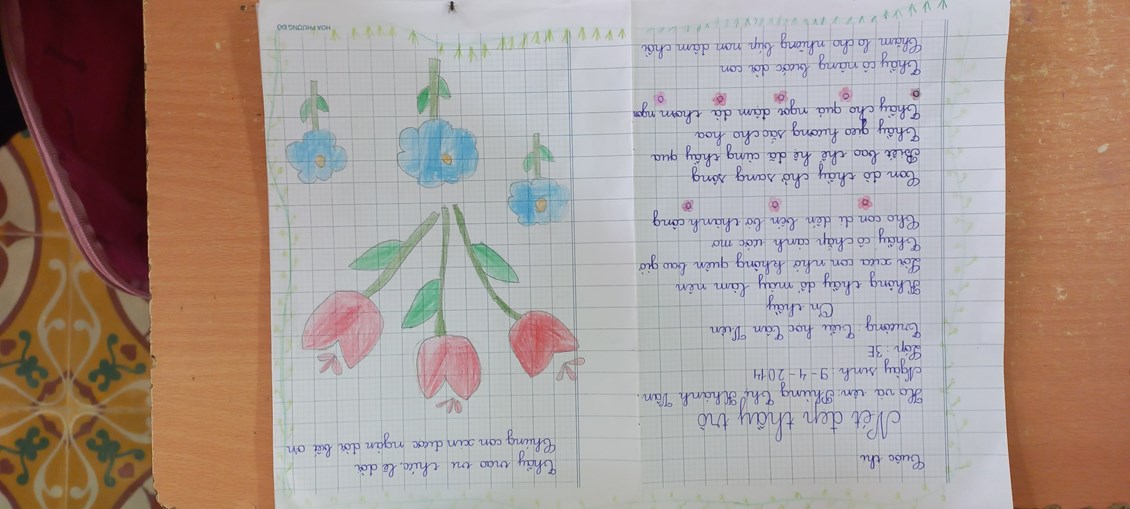 Cuộc thi
Nét đẹp thầy trò
Họ và tên: Phùng Thị Khánh Vân.
Ngày sinh: 9-4-2014
Lớp: 3E
Trường: Tiểu học Tản Viên
Ơn thầy
Không thầy đố mày làm nên
Lời xưa con nhớ không quên bao giờ
Thầy cô chắp cánh ước mơ
Cho con đi đến bến bờ thành công
Con đò thầy chở sang sông
Biết bao thế hệ đã cùng thầy qua
Thầy gieo hương sắc cho hoa
Thầy cho quả ngọt đậm đà thơm ngon
Thầy cô nâng bước đời con
Chăm lo cho những búp non đâm chồi
Thầy trao tri thức lẽ đời
Chúng con xin được ngàn đời biết ơn
HOA PHƯỢNG ĐỎ